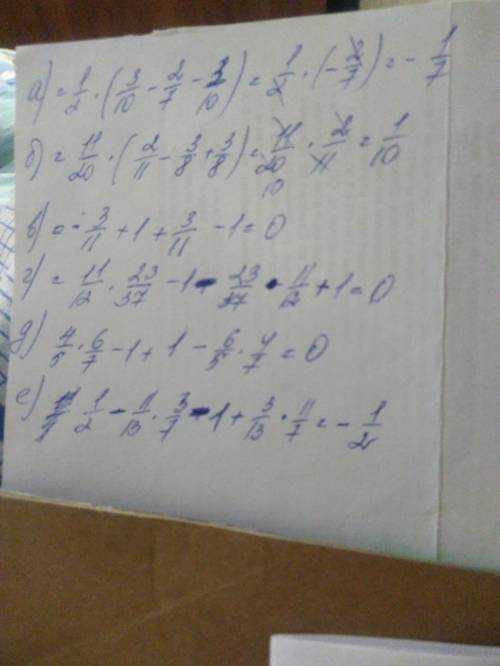 а) = 1/2 · (3/10 - 2/7 - 3/10) = 1/2 · (-2/7) = - 1/7
б) = 11/20 · (2/11 - 3/8 + 3/8) = 11/20 · 2/11 = 1/10
10
в) = - 3/11 + 1 + 3/11 - 1 = 0
г) = 11/12 · 23/37 - 1 - 23/37 · 11/12 + 1 = 0
д) 4/5 · 6/7 - 1 + 1 - 6/5 · 4/7 = 0
е) 1/2 - 11/13 · 3/7 - 1 + 3/13 · 11/7 = - 1/2